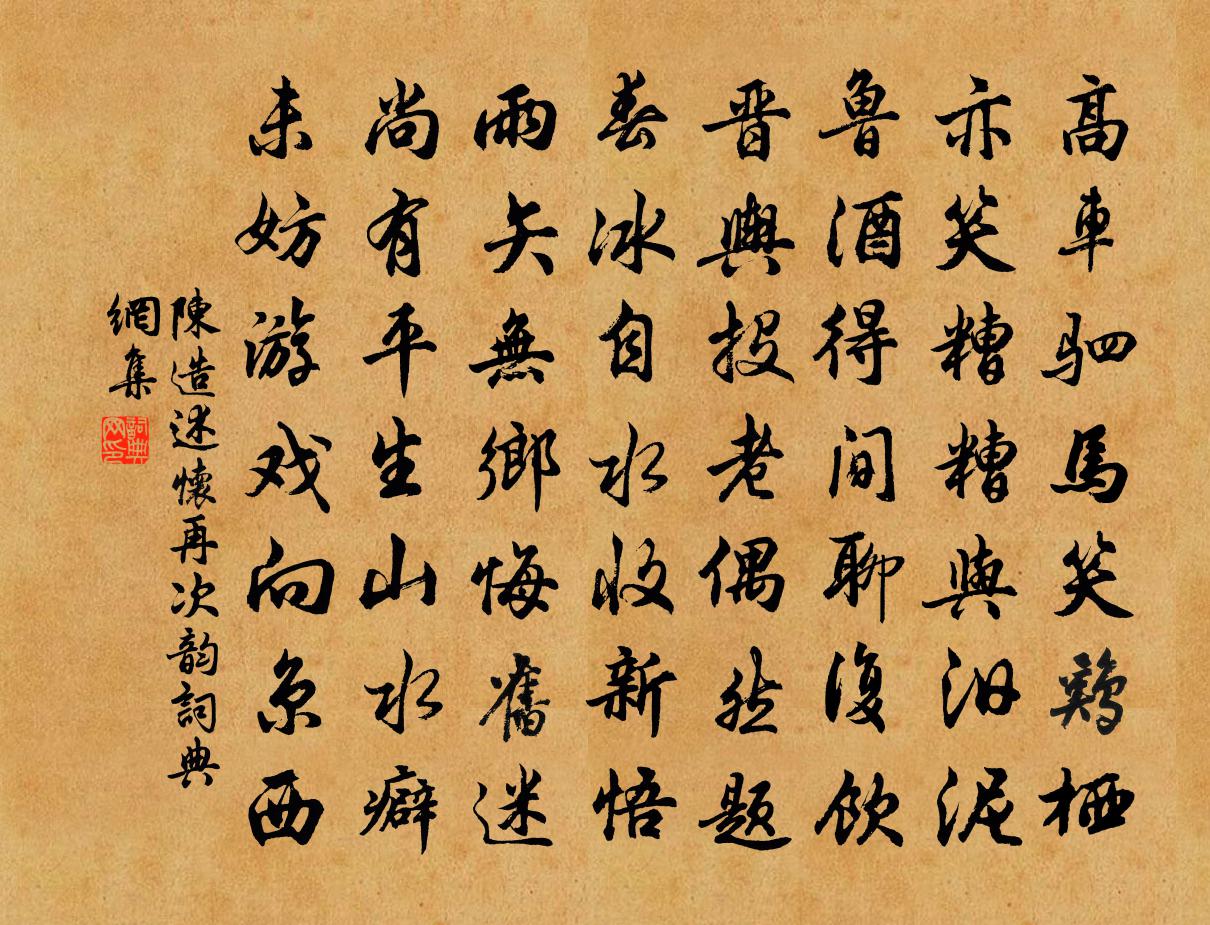 高車駟馬笑鷄栖
亦笑糟糟與汨泥
魯酒得間聊復飲
晋與投老偶然題
春冰自水收新悟
雨矢無鄉悔舊迷
尚有平生山水癖
未妨游戏向京西
陳造述懷再次韵詞典
網集
詞典
网印